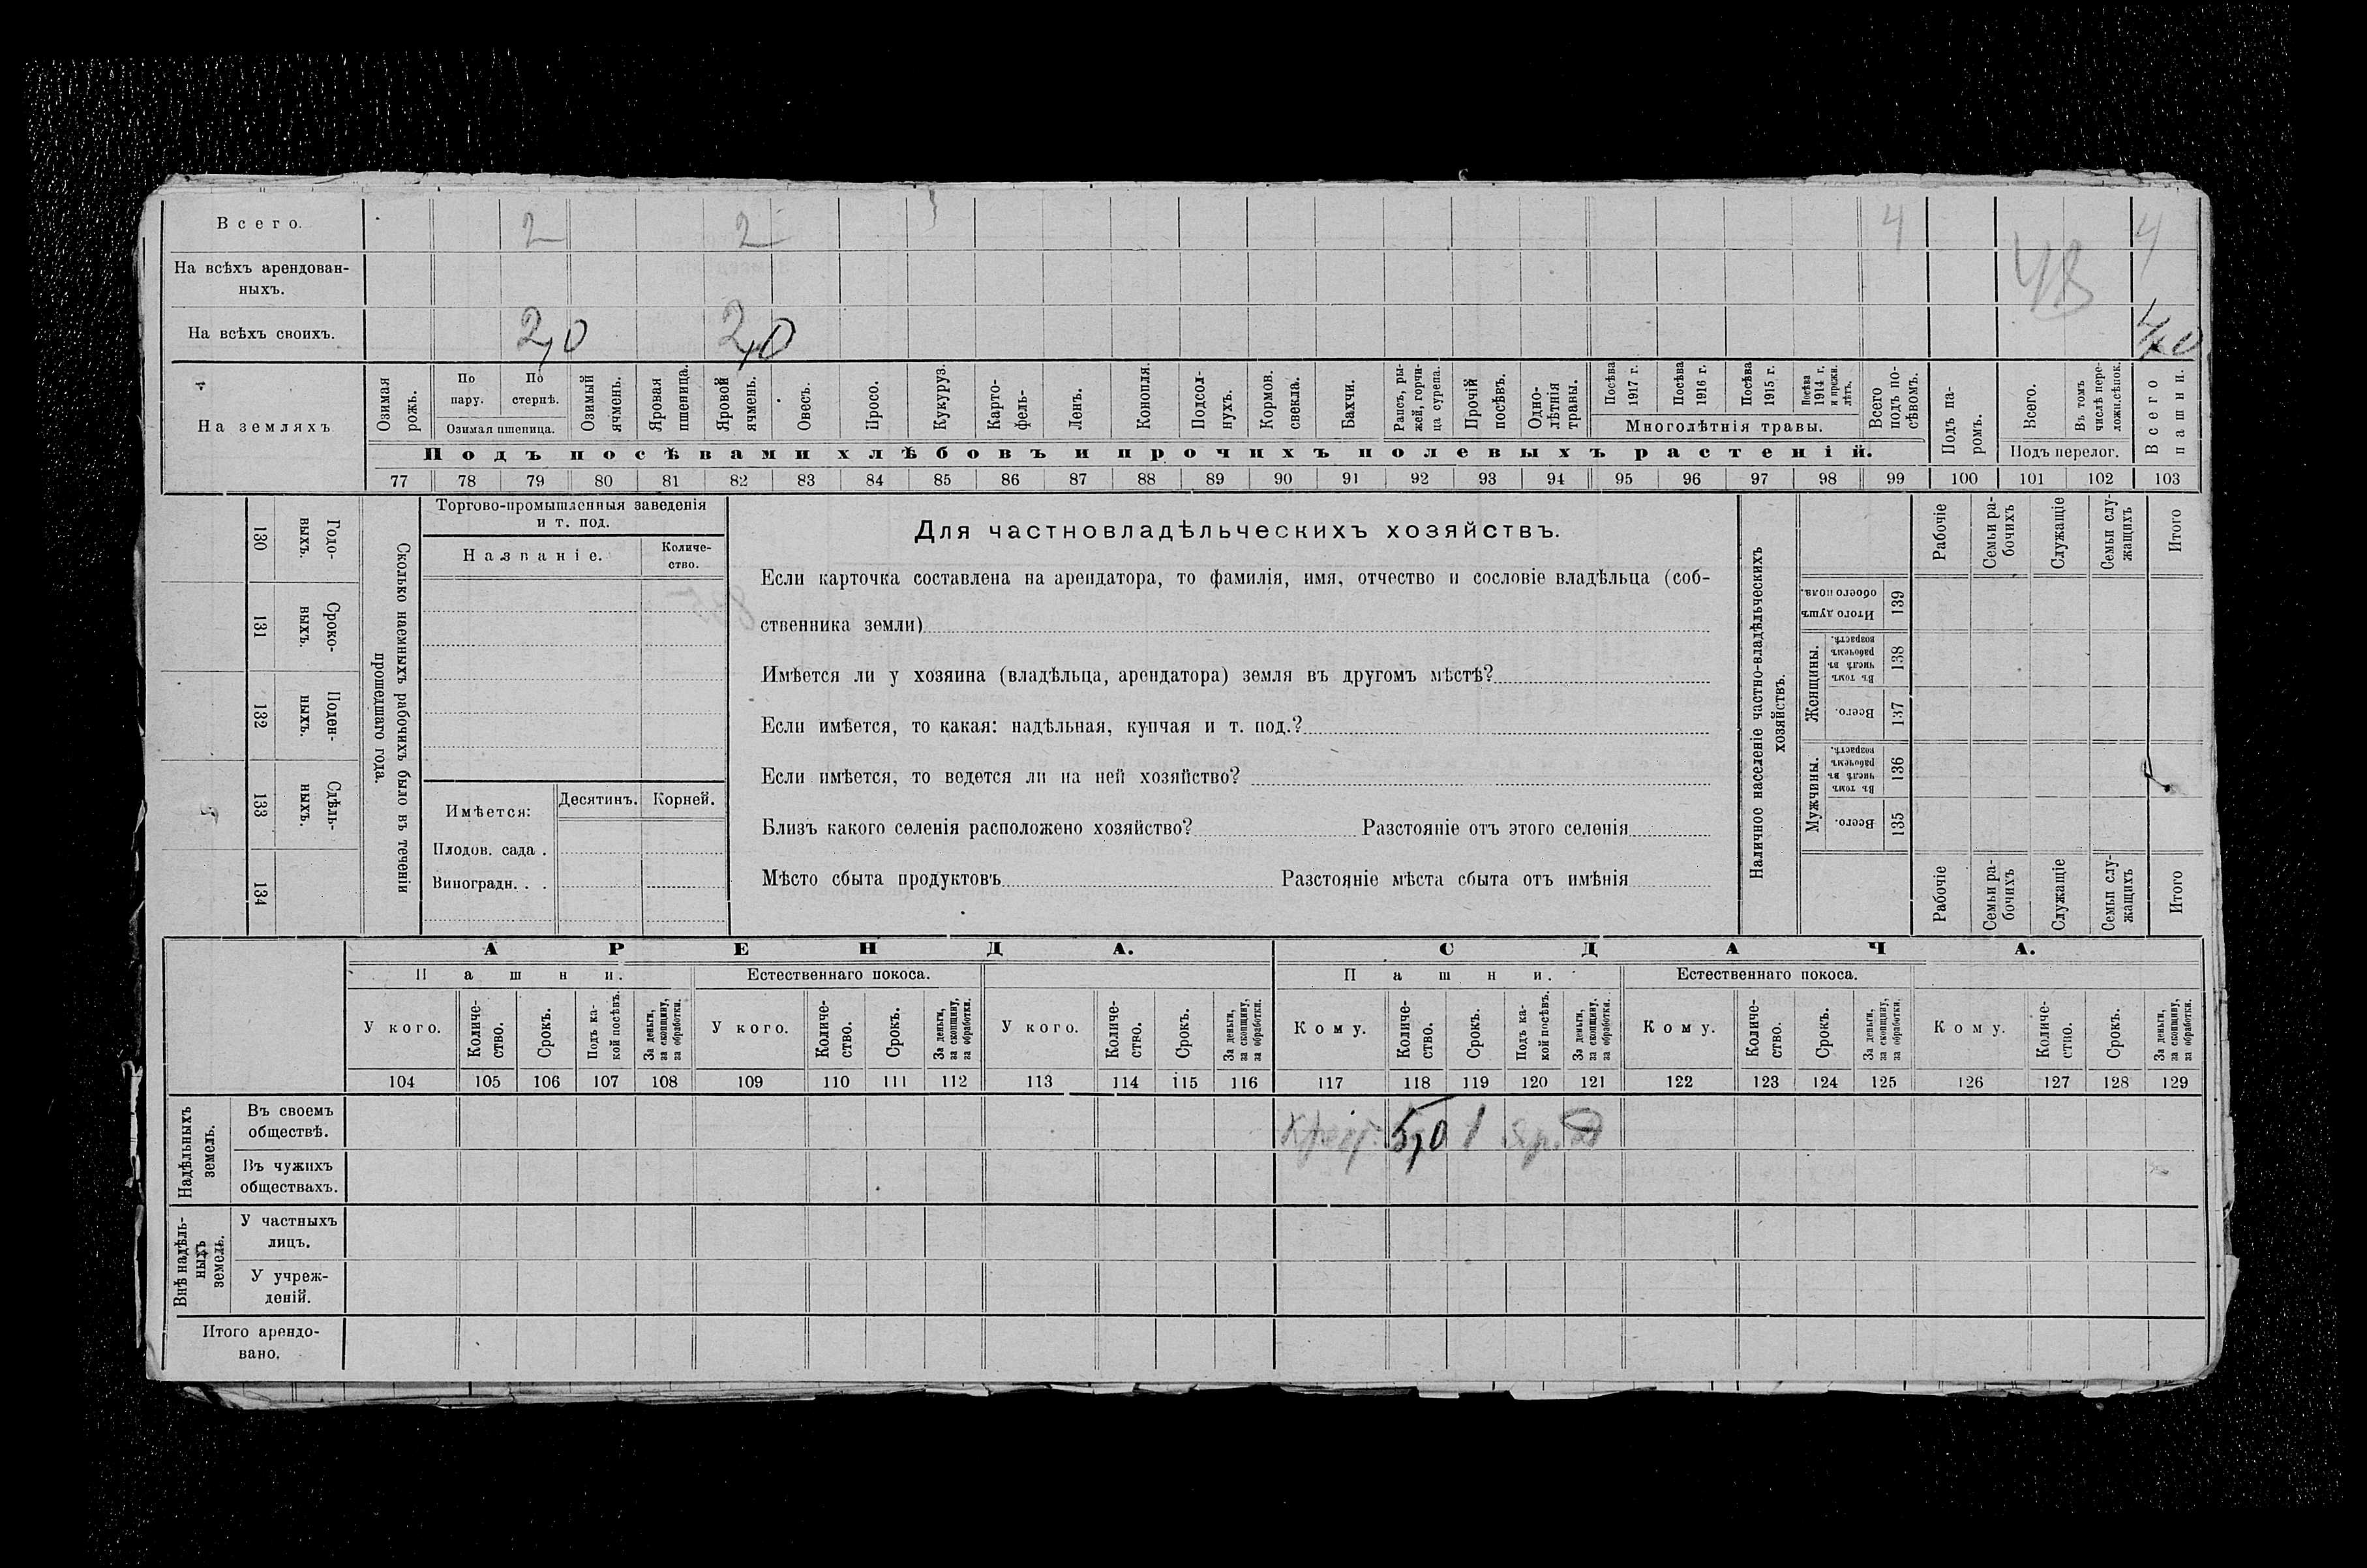 Всего. 2 2 4 4
На всѣхъ арендован-
ныхъ.
На всѣхъ своихъ. 2,0 2,0 4,0
На земляхъ
Озимая рожь.
По пару.
По стернѣ.
Озимая пшеница.
Озимый ячмень.
Яровая пшеница.
Яровой ячмень.
Овесъ.
Просо.
Кукуруз.
Карто-
фель-
Ленъ.
Конопля.
Подсол-
нухъ.
Кормов.
свекла.
Бахчи.
Рапсъ, ры-
жей, горчи-
ца сурепа.
Прочій
посѣвъ.
Одно-
лѣтнія
травы.
Посѣва
1917 г.
Посѣва
1916 г.
Посѣва
1915 г.
Посѣва
1914 г.
и прежн.
лѣтъ.
Многолѣтнія травы.
Всего
подъ по-
сѣвомъ.
Подъ па-
ромъ.
Всего.
Въ томъ
числѣ пере-
ложн.сѣнок.
Подъ перелог.
Всего
пашни.
Подъ посѣвами хлѣбовъ и прочихъ полевыхъ растеній.
77 78 79 80 81 82 83 84 85 86 87 88 89 90 91 92 93 94 95 96 97 98 99 100 101 102 103
130 Годо-
выхъ.
131 Сроко-
выхъ.
132 Поден-
ныхъ.
133 Сдѣль-
ныхъ.
134
Сколько наемныхъ рабочихъ было въ теченіи
прошедшаго года.
Торгово-промышленныя заведенія
и т. под.
Названіе.
Количе-
ство.
Имѣется:
Десятинъ.
Корней.
Плодов. сада .
Виноградн. . .
Для частновладѣльческихъ хозяйствъ.
Если карточка составлена на арендатора, то фамилія, имя, отчество и сословіе владѣльца (соб-
ственника земли)
Имѣется ли у хозяина (владѣльца, арендатора) земля въ другомъ мѣстѣ?
Если имѣется, то какая: надѣльная, купчая и т. под.?
Если имѣется, то ведется ли на ней хозяйство?
Близъ какого селенія расположено хозяйство? Разстояніе отъ этого селенія
Мѣсто сбыта продуктовъ Разстояніе мѣста сбыта отъ имѣнія
Наличное населеніе частно-владѣльческихъ
хозяйствъ.
Итого душъ
обоего пола.
139
Женщины.
Въ томъ
числѣ въ
рабочемъ
возрастѣ.
138
Всего.
137
Мужчины.
Въ томъ
числѣ въ
рабочемъ
возрастѣ.
136
Всего.
135
Рабочіе
Семьи ра-
бочихъ
Служащіе
Семьи слу-
жащихъ
Итого
Рабочіе
Семьи ра-
бочихъ
Служащіе
Семьи слу-
жащихъ
Итого
АРЕНДА. СДАЧА.
Пашни. Естественнаго покоса. Пашни. Естественнаго покоса.
У кого.
Количе-
ство.
Срокъ.
Подъ ка-
кой посѣвъ.
За деньги,
за скопщину,
за обработки.
У кого.
Количе-
ство.
Срокъ.
За деньги,
за скопщину,
за обработки.
У кого.
Количе-
ство.
Срокъ.
За деньги,
за скопщину,
за обработки.
Кому.
Количе-
ство.
Срокъ.
Подъ ка-
кой посѣвъ.
За деньги,
за скопщину,
за обработки.
Кому.
Количе-
ство.
Срокъ.
За деньги,
за скопщину,
за обработки.
Кому.
Количе-
ство.
Срокъ.
За деньги,
за скопщину,
за обработки.
104 105 106 107 108 109 110 111 112 113 114 115 116 117 118 119 120 121 122 123 124 125 126 127 128 129
Надѣльныхъ
земель.
Въ своемъ
обществѣ.
5,0 1
Въ чужихъ
обществахъ.
Внѣ надѣль-
ныхъ
земель.
У частныхъ
лицъ.
У учреж-
деній.
Итого арендо-
вано.